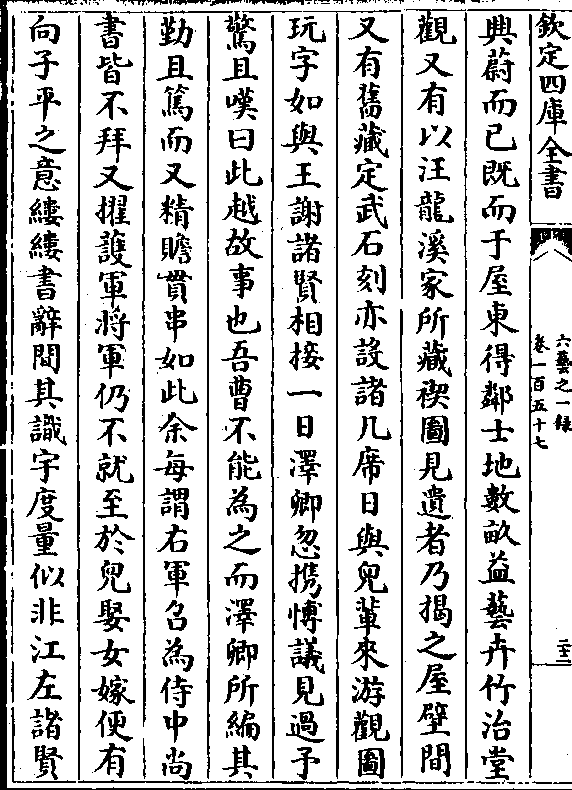 欽定四庫全書
六藝之一録
卷一百五十七
興蔚而已既而于屋東得鄰士地數畝益藝卉竹治堂
觀又有以汪龍溪家所藏禊圖見遺者乃揭之屋壁間
又有舊藏定武石刻亦設諸几席日與兒輩來游觀圖
玩字如與王謝諸賢相接一日澤卿忽携愽議見過予
驚且嘆曰此越故事也吾曹不能為之而澤卿所編其
勤且篤而又精贍貫串如此余每謂右軍召為侍中尚
書皆不拜又擢䕶軍將軍仍不就至於兒娶女嫁便有
向子平之意縷縷書辭間其識宇度量似非江左諸賢